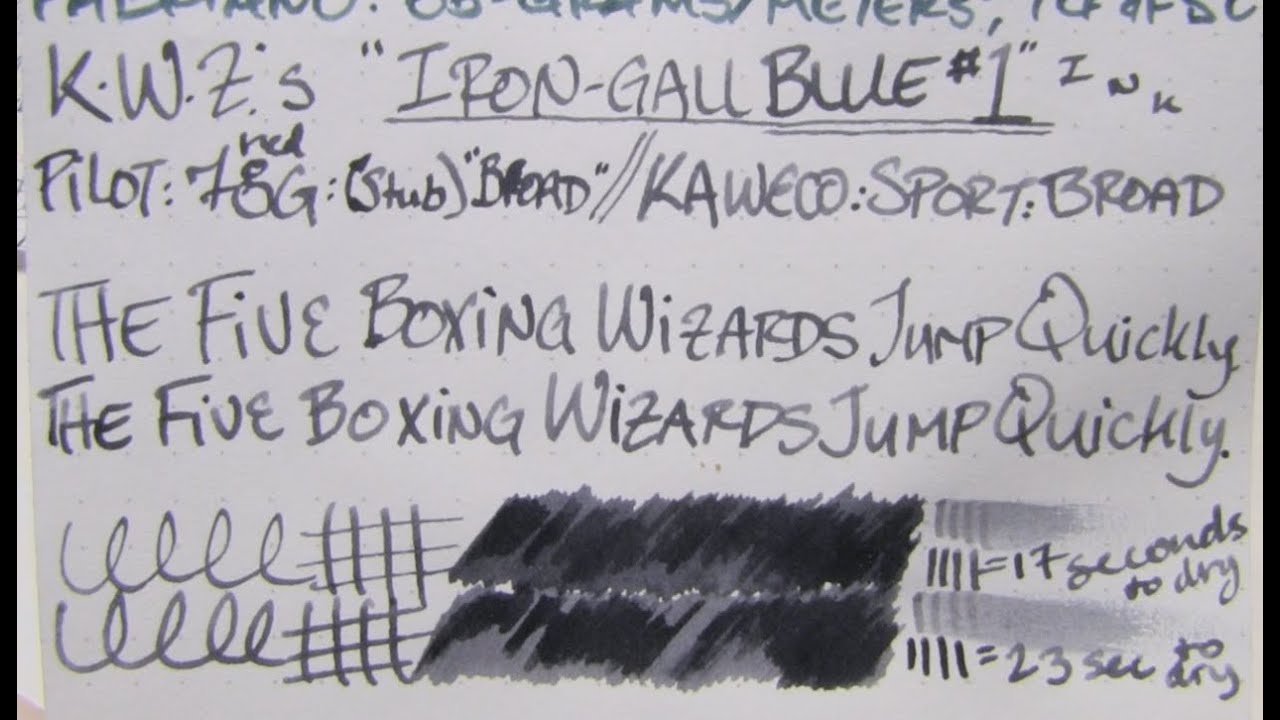 FABRIANO: 85-GRAMS/METERS,
K.W.Z.'s "IRON-GALL BLUE #1" INK
PiLOT: 78G: red (Stub) "BROAD" // KAWECO: SPORT: BROAD
THE FiVE BOXiNG WiZARDS JUMP QuickLy.
THE FiVE BOXiNG WiZARDS JUMP QuickLy.
||||=17 seconds
to dry
||||=23 sec to
dry